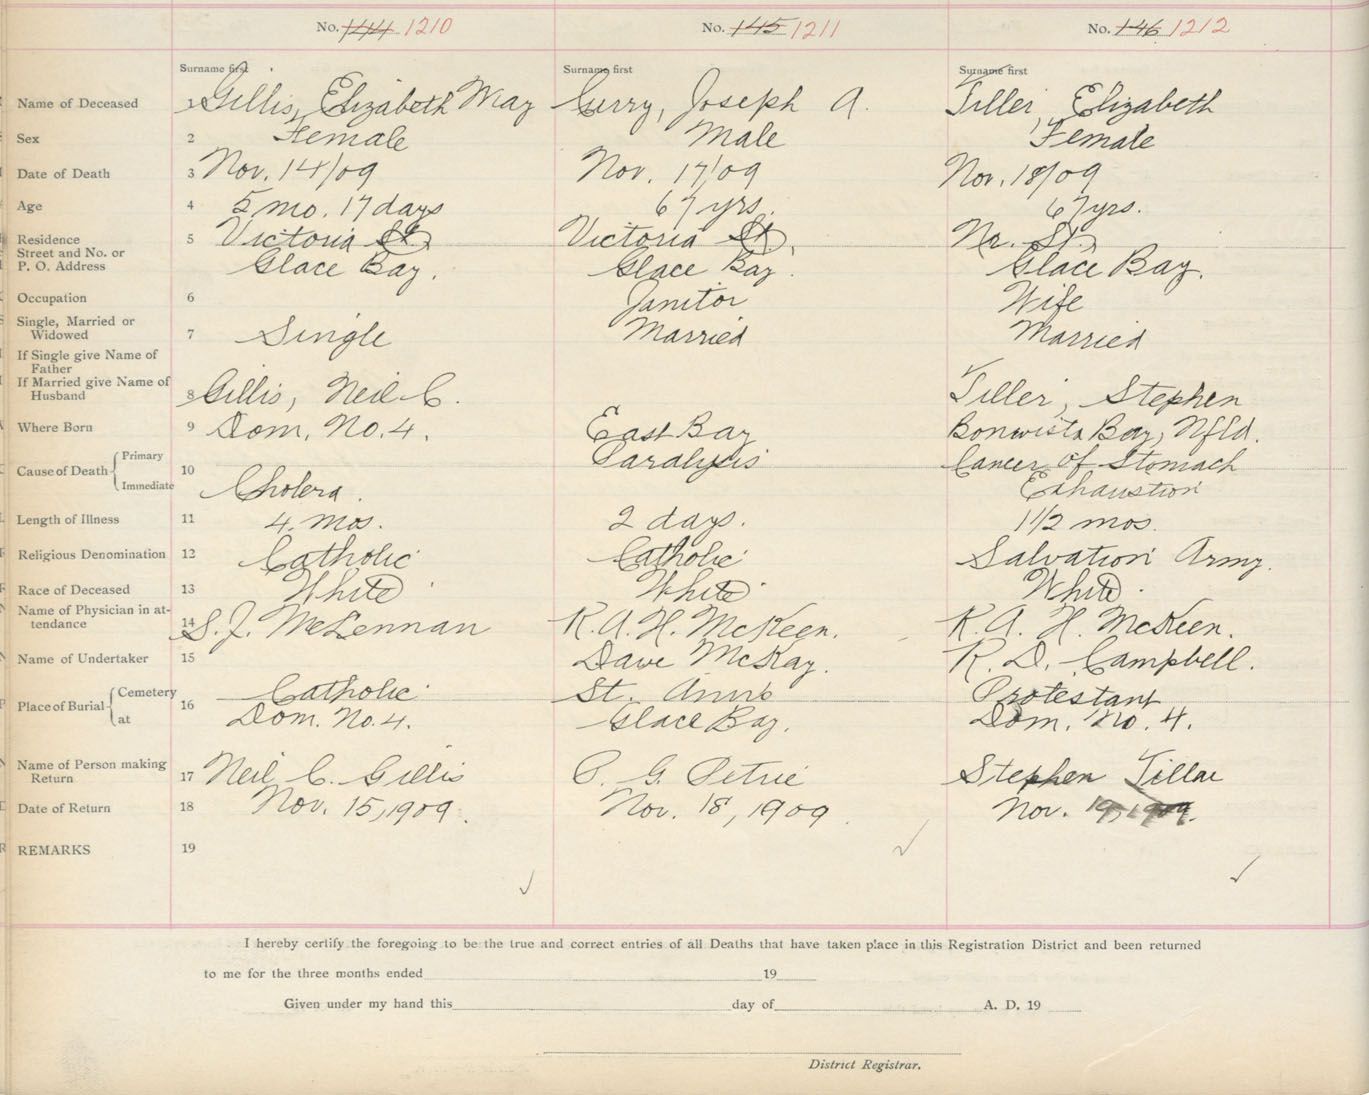 No. 144 1210 No. 145 1211 No. 146 1212
Surname first Surname first Surname first
Name of Deceased 1 Gillis, Elizabeth May Curry, Joseph A. Tiller, Elizabeth
Sex 2 Female Male Female
Date of Death 3 Nov. 14/09 Nov. 17/09 Nov. 18/09
Age 4 5 mo. 17 days 67 yrs. 67 yrs.
Residence 5 Victoria St. Victoria St. St.
Street and No. or
P. O. Address Glace Bay. Glace Bay. Glace Bay.
Occupation 6 Janitor Wife
Single, Married or
Widowed 7 Single Married Married
If Single give Name of
Father
If Married give Name of
Husband 8 Gillis, Neil C. Tiller, Stephen
Where Born 9 Dom. No. 4. East Bay Bonavista Bay, Nfld.
Cause of Death Primary 10 Paralysis Cancer of Stomach
Immediate Cholera. Exhaustion
Length of Illness 11 4. mos. 2 days. 1 1/2 mos.
Religious Denomination 12 Catholic Catholic Salvation Army.
Race of Deceased 13 White White White.
Name of Physician in at-
tendance 14 S. J. McLennan R. A. H. McKeen. R. A. H. McKeen.
Name of Undertaker 15 Dave McKay. R. D. Campbell.
Place of Burial Cemetery 16 Catholic St. Ann's Protestant
at Dom. No. 4. Glace Bay. Dom. No. 4.
Name of Person making
Return 17 Neil C. Gillis P. G. Petrie Stephen Tiller
Date of Return 18 Nov. 15, 1909. Nov. 18, 1909. Nov. 19, 1909.
REMARKS 19
I hereby certify the foregoing to be the true and correct entries of all Deaths that have taken place in this Registration District and been returned
to me for the three months ended 19
Given under my hand this day of A. D. 19
District Registrar.